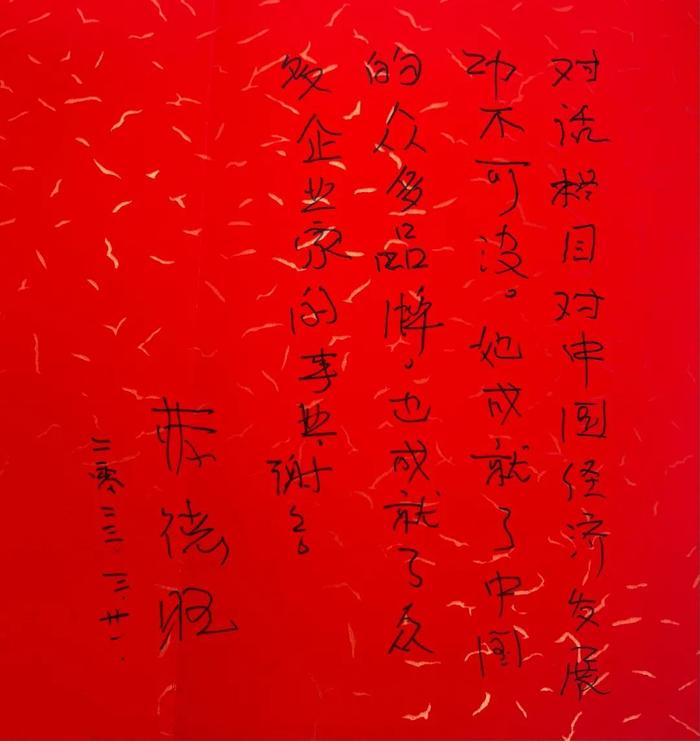 对话格目对中国经济发展
功不可没。她成就了中国
的众多品牌。也成就了众
多企业家的事业.谢谢。
曹德旺
二零二三.三.廿一.